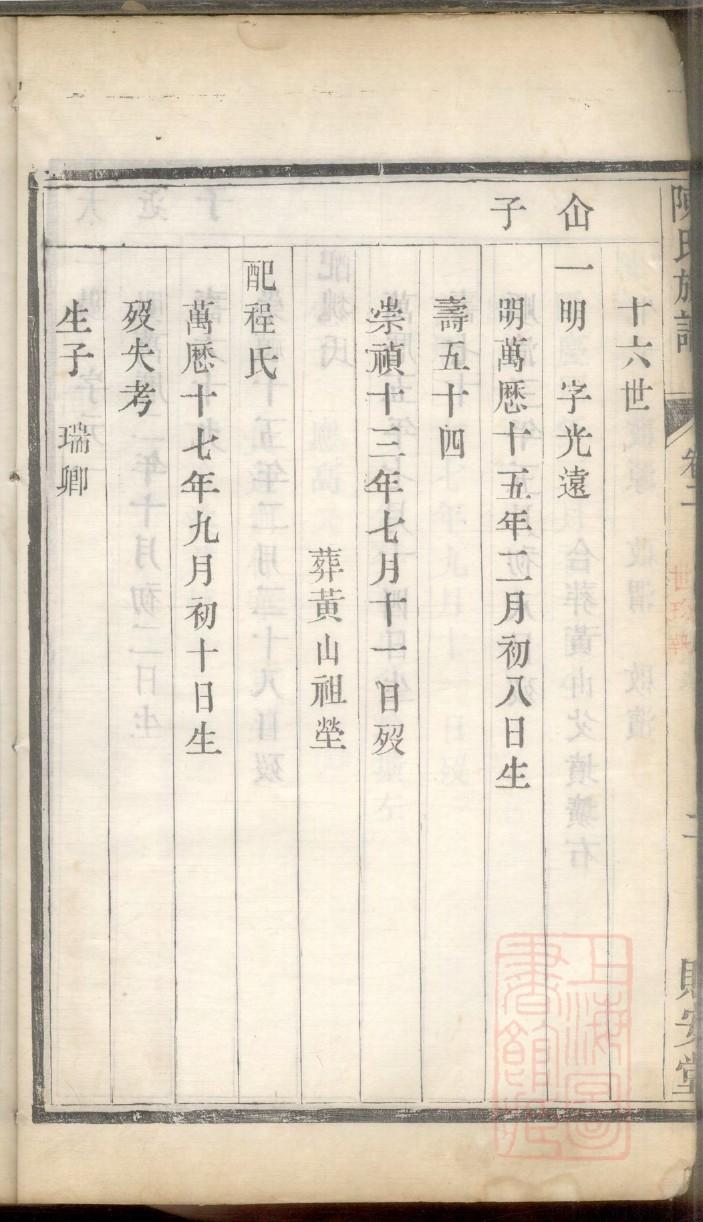 陳氏族譜
卷二
二
貽安堂
十六世
仚
子
一明 字光遠
明萬厯十五年二月初八日生
壽五十四
崇禎十三年七月十一日歿
葬黃山祖塋
配程氏
萬厯十七年九月初十日生
歿失考
生子 瑞卿
上海圖書館藏